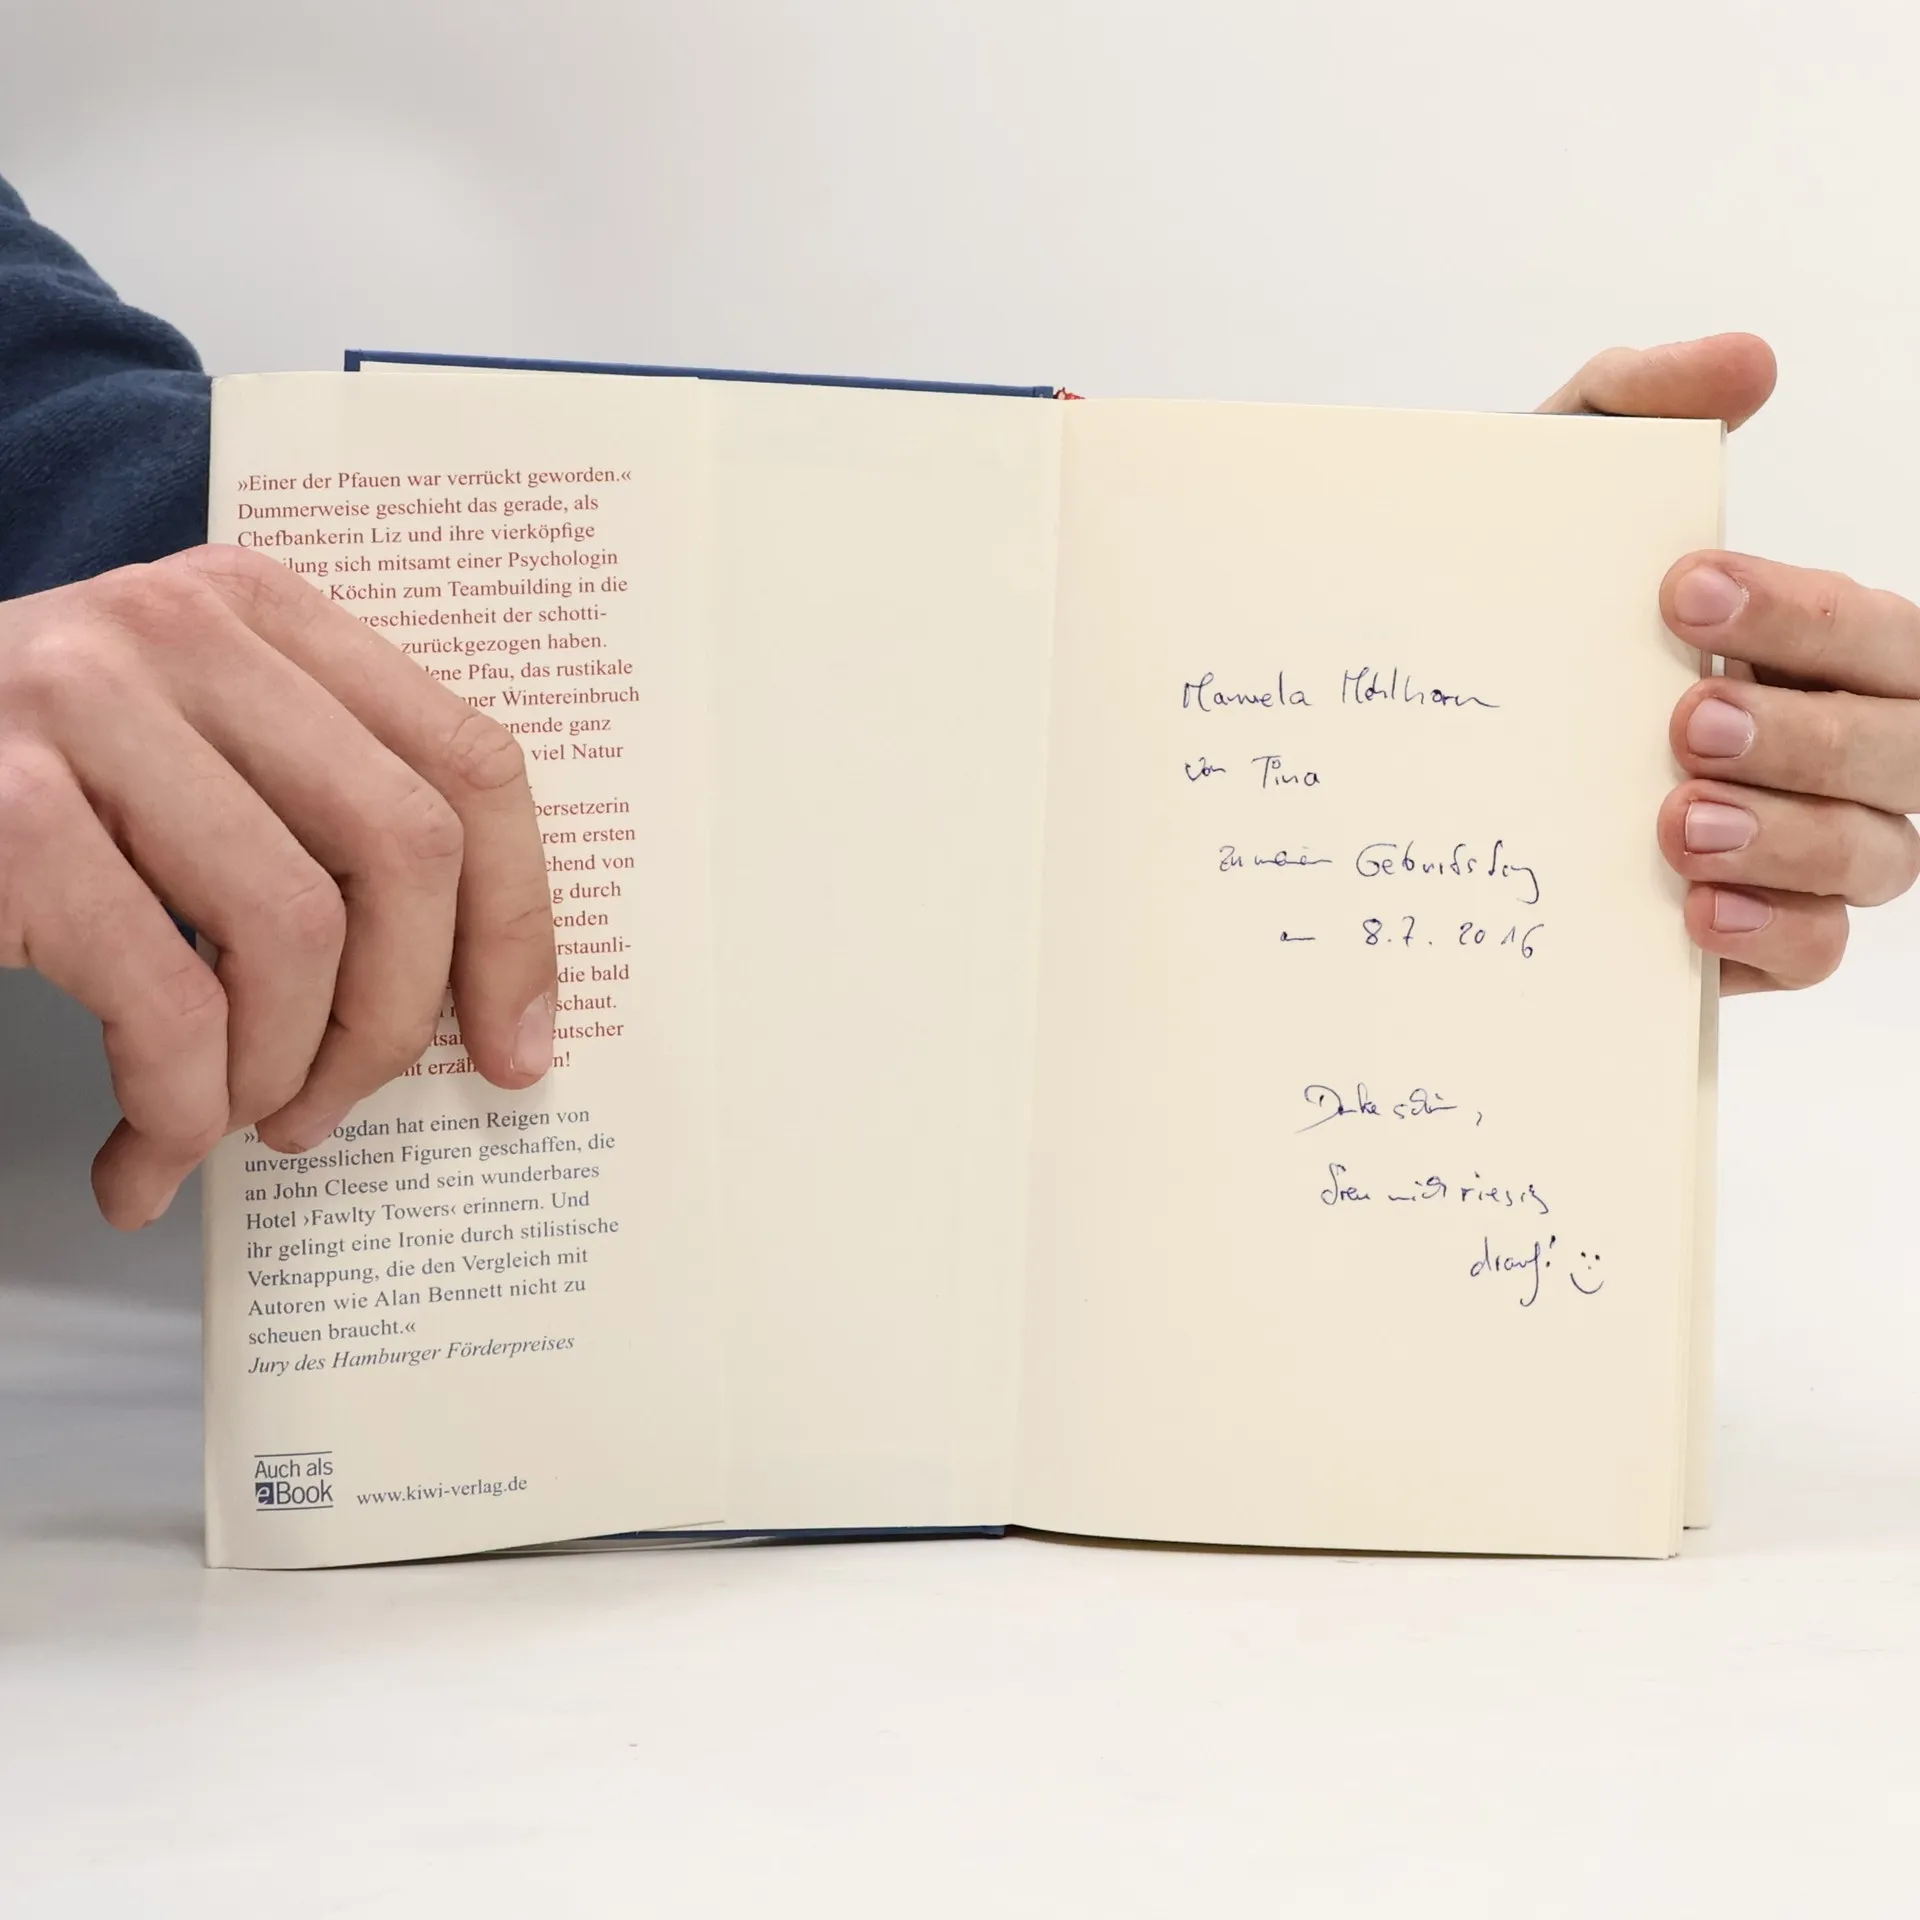 »Einer der Pfauen war verrückt geworden.«
Dummerweise geschieht das gerade, als
Chefbankerin Liz und ihre vierköpfige
ilung sich mitsamt einer Psychologin
Köchin zum Teambuilding in die
geschiedenheit der schotti-
zurückgezogen haben.
ene Pfau, das rustikale
ner Wintereinbruch
enende ganz
viel Natur
bersetzerin
rem ersten
chend von
g durch
enden
rstaunli-
die bald
schaut.
utscher
erzäh n!
ogdan hat einen Reigen von
unvergesslichen Figuren geschaffen, die
an John Cleese und sein wunderbares
Hotel ›Fawlty Towers‹ erinnern. Und
ihr gelingt eine Ironie durch stilistische
Verknappung, die den Vergleich mit
Autoren wie Alan Bennett nicht zu
scheuen braucht.«
Jury des Hamburger Förderpreises
Auch als
eBook
www.kiwi-verlag.de
Manuela
von Tina
zu meinem Geburtstag
am 8.7.2016
Dankeschön,
freu mich riesig
drauf!